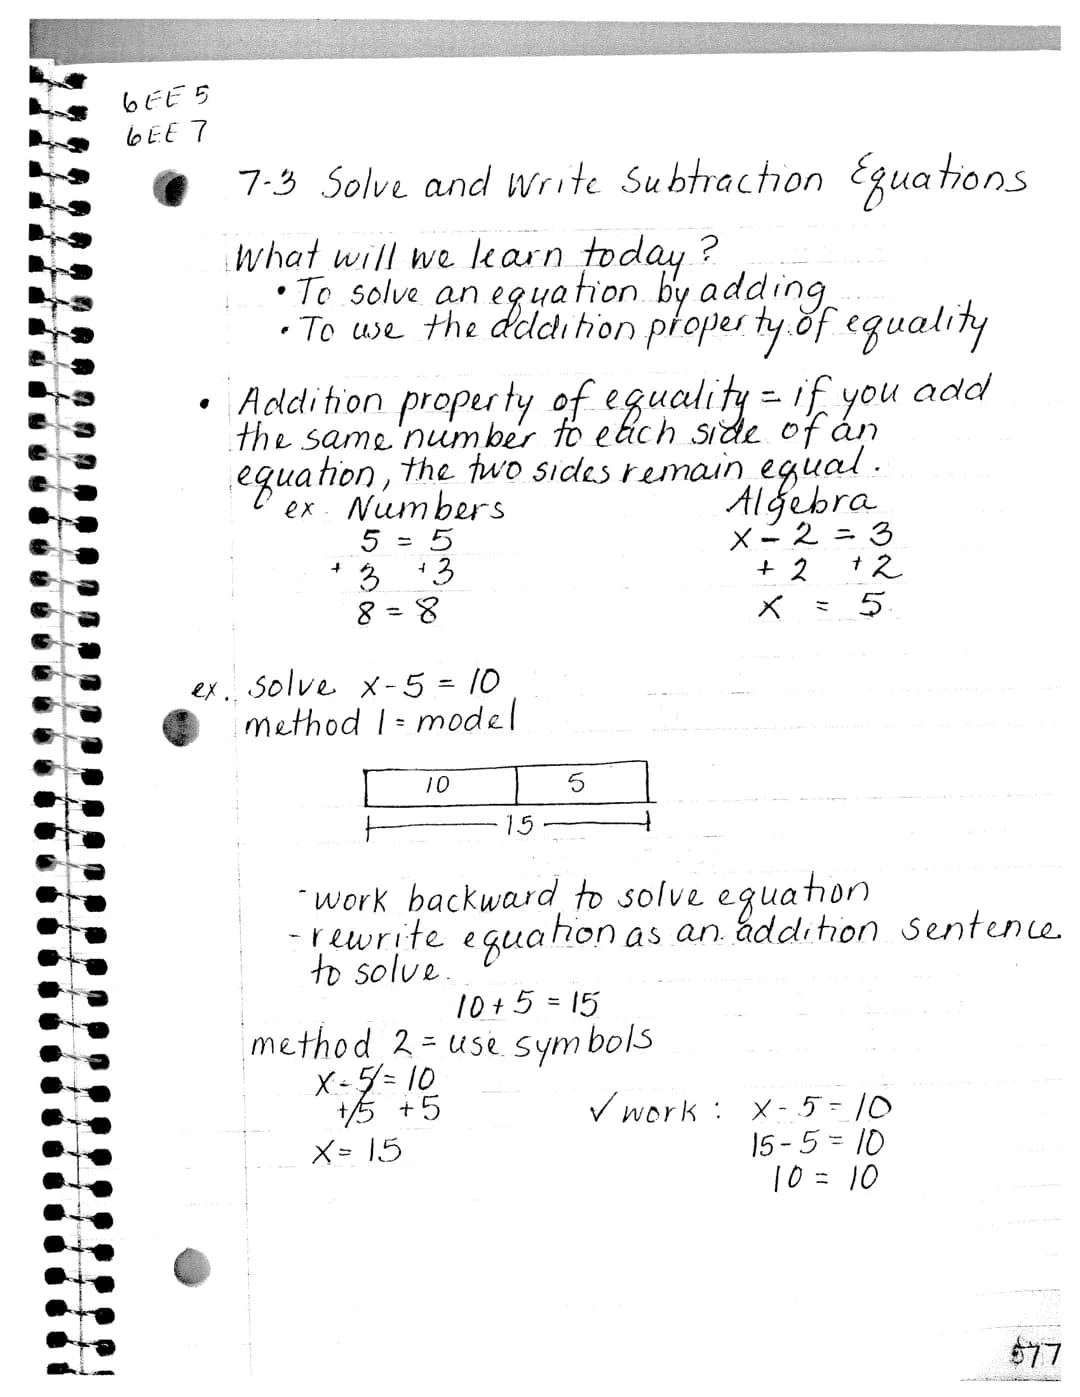 6EE5
6EE7
7-3 Solve and Write Subtraction Equations
What will we learn today?
• To solve an equation by adding
• To use the addition property of equality
• Addition property of equality = if you add
the same number to each side of an
equation, the two sides remain equal.
ex. Numbers Algebra
5 = 5 x - 2 = 3
+3 +3 + 2 +2
8 = 8 x = 5
ex. solve x-5 = 10
method 1 = model
10 5
15
- work backward to solve equation
- rewrite equation as an addition sentence
to solve.
10 + 5 = 15
method 2 = use symbols
x - 5 = 10
+5 +5 ✓ work : x - 5 = 10
x = 15 15 - 5 = 10
10 = 10
577